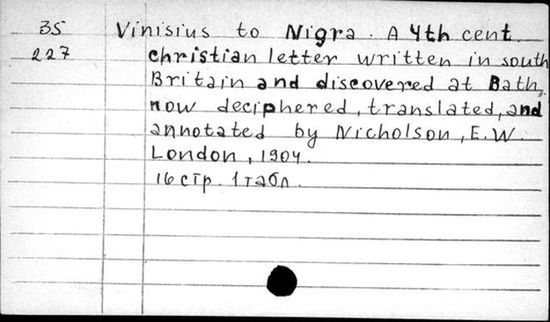 35 Vinisius to Nigra. A 4th cent.
227 christian letter written in south
Britain and discovered at Bath,
now deciphered, translated, and
annotated by Nicholson, E.W.
London, 1904.
16 стр. 1 табл.